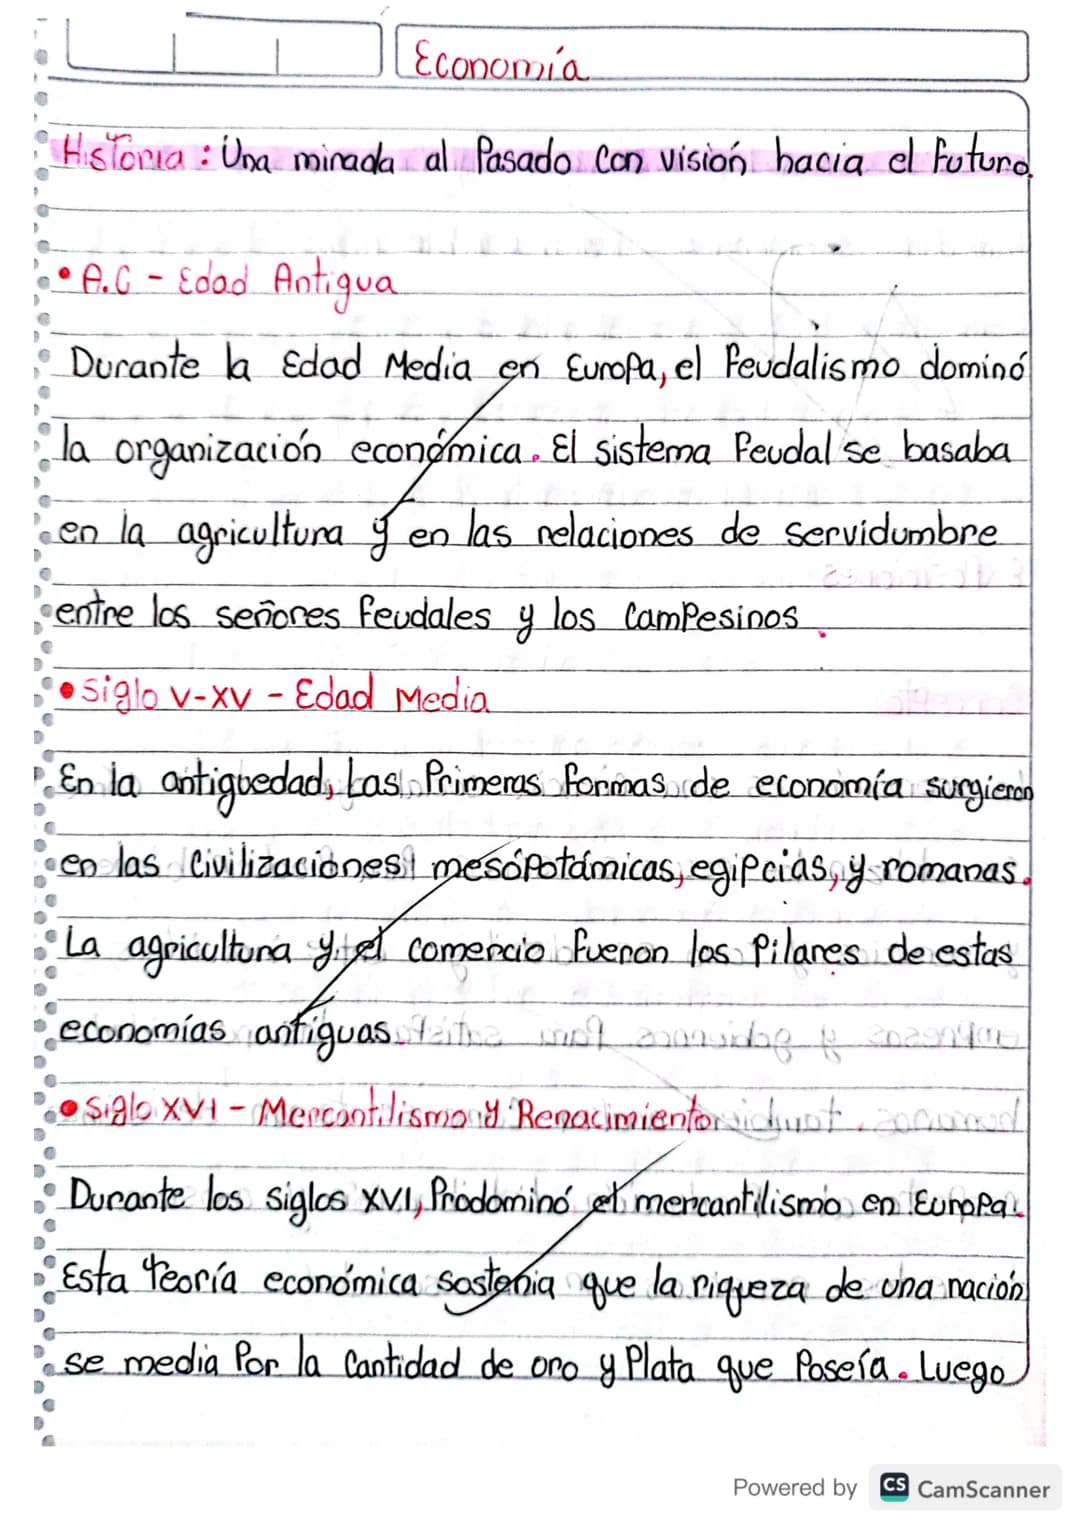 Economía
Historia: Una mirada al Pasado con visión hacia el futuro.
• A.C - Edad Antigua
Durante la Edad Media en Europa, el feudalismo dominó
la organización económica. El sistema feudal se basaba
en la agricultura y en las relaciones de servidumbre
entre los señores feudales y los campesinos.
• Siglo V-XV - Edad Media
En la antiguedad, Las Primeras formas de economía surgieron
en las civilizaciones mesopotámicas, egipcias, y romanas.
La agricultura y el comercio fueron los Pilares de estas
economías antiguas.
• Siglo XVI - Mercantilismo y Renacimiento
Durante los siglos XVI, Prodominó el mercantilismo en Europa.
Esta teoría económica sostenia que la riqueza de una nación
se media Por la cantidad de oro y Plata que Poseía. Luego
Powered by CS CamScanner